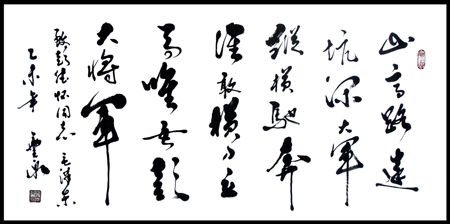 山高路遠
坑深大軍
縱橫馳奔
誰敢橫刀立
馬唯吾彭
大將軍
致彭德懷同志 毛澤東
乙未年